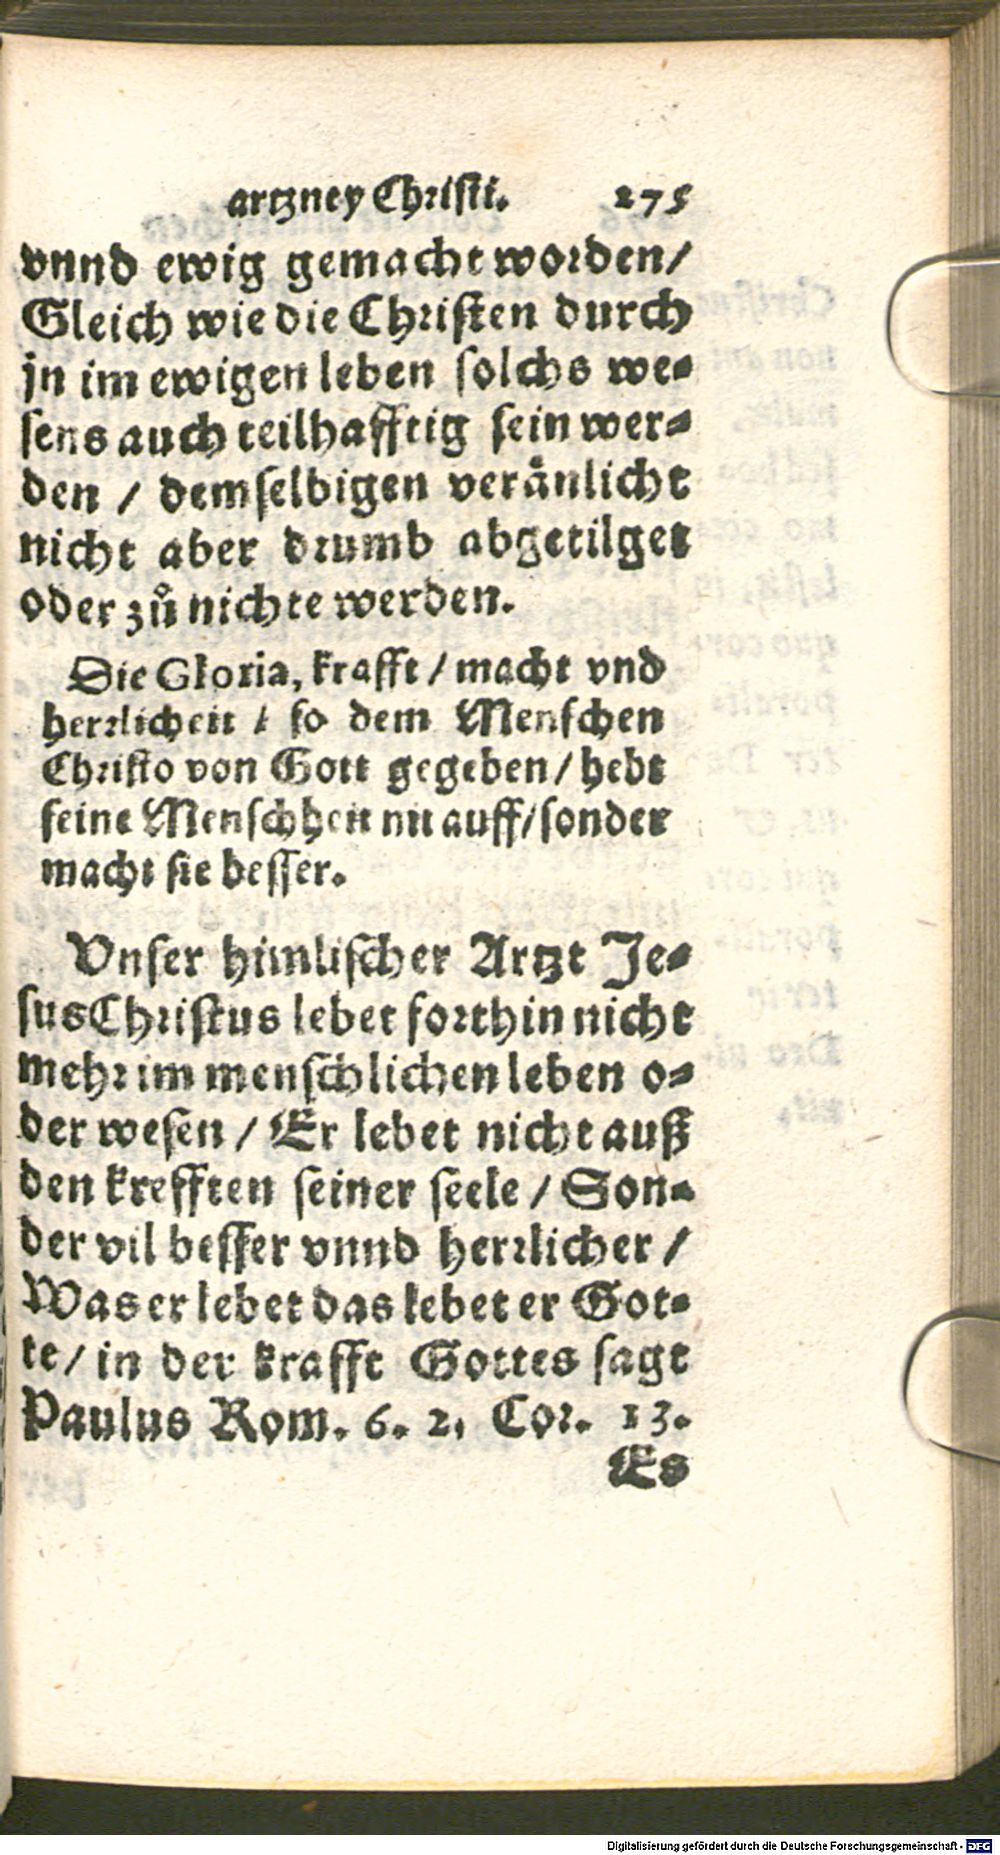 artzney Christi. 275
vnnd ewig gemacht worden/
Gleich wie die Christen durch
jn im ewigen leben solchs we-
sens auch teilhafftig sein wer-
den / demselbigen veraͤnlicht
nicht aber drumb abgetilget
oder zuͦ nichte werden.
Die Gloria, krafft / macht vnd
herrlicheit / so dem Menschen
Christo von Gott gegeben / hebt
seine Menschheit nit auff / sonder
macht sie besser.
Vnser himlischer Artzt Je-
sus Christus lebet forthin nicht
mehr im menschlichen leben o-
der wesen / Er lebet nicht auß
den krefften seiner seele / Son-
der vil besser vnnd herrlicher /
Was er lebet das lebet er Got-
te / in der krafft Gottes sagt
Paulus Rom. 6. 2. Cor. 13.
Es
Digitalisierung gefördert durch die Deutsche Forschungsgemeinschaft - DFG